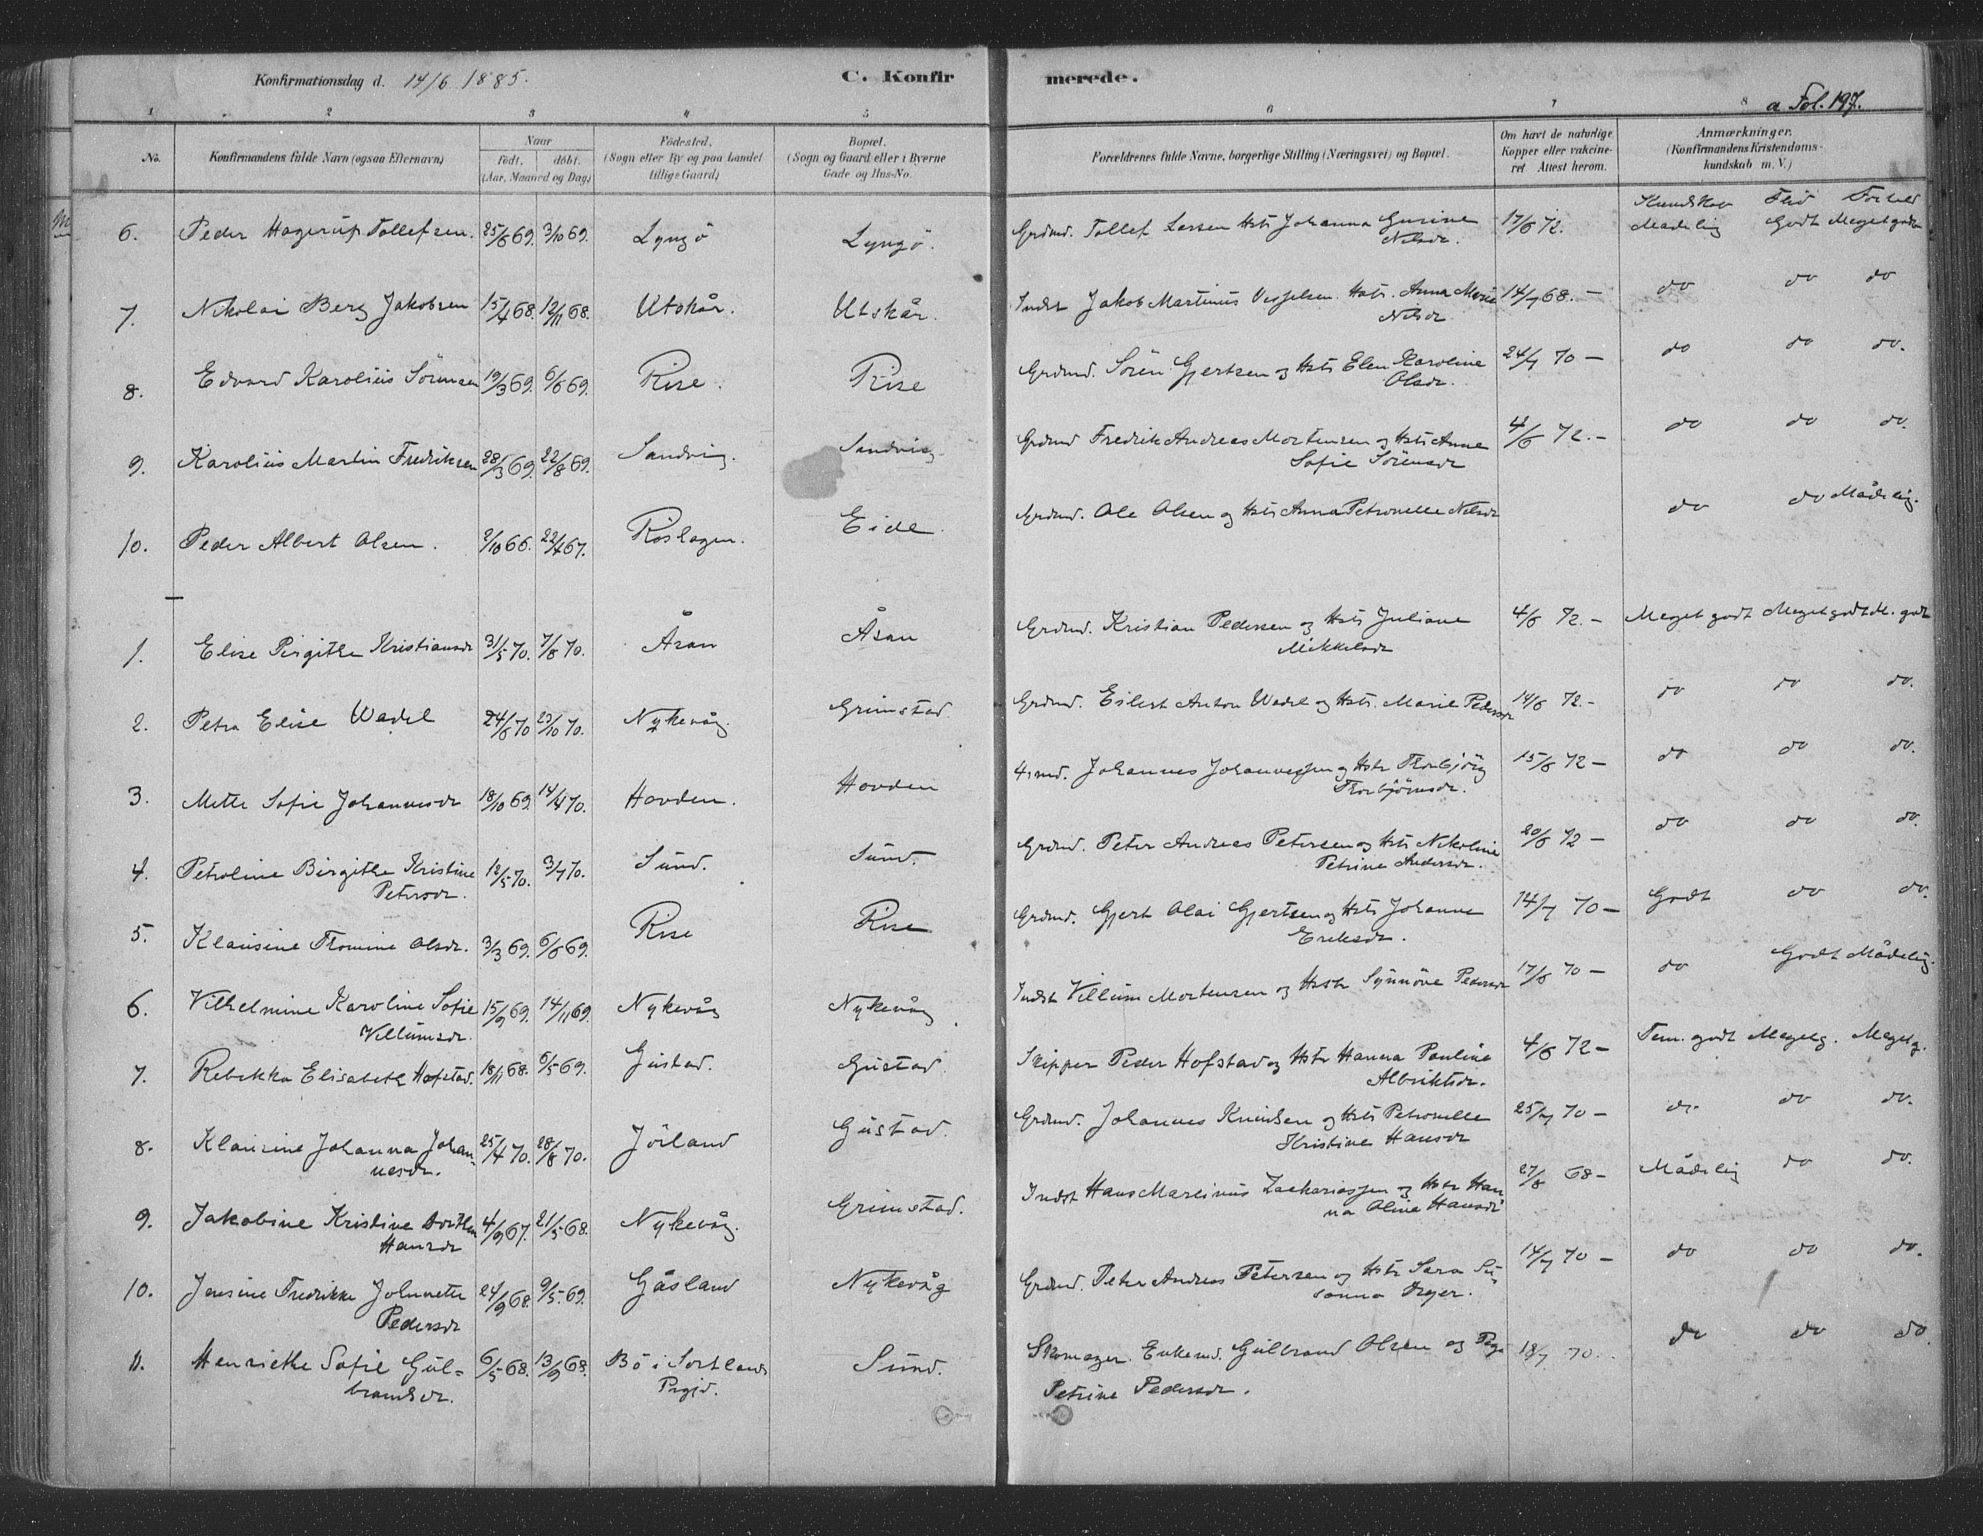 Konfirmationsdag d. 14/6 1885.
C. Konfirmerede.
a Fol. 197.
1 2 3 4 5 6 7 8
No.
Konfirmandens fulde Navn (ogsaa Efternavn)
Naar
født. døbt.
(Aar, Maaned og Dag)
Fødested.
(Sogn eller By og paa Landet
tillige Gaard)
Bopæl.
(Sogn og Gaard eller i Byerne
Gade og Hus-No.
Forældrenes fulde Navne, borgerlige Stilling (Næringsvei) og Bopæl.
Om havt de naturlige
Kopper eller vakcine-
ret Attest herom.
Anmærkninger.
(Konfirmandens Kristendoms-
kundskab m. V.)
Kundskab Flid Forhold
6. Peder Hagerup Tollefsen. 25/6 69. 3/10 69. Lyngö Lyngö. Grdmd. Tollef Larsen Hstr Johanna Gurine 17/6 72. Madelig Godt Meget godt
Nilsdr.
7. Nikolai Berg Jakobsen 15/4 68. 12/11 68. Utskår. Utskår. Indst Jakob Martinus Hstr. Anna Marie 14/7 68. – do do do
Nilsdr
8. Edvard Karolius Sörensen 19/3 69. 6/6 69. Rise. Rise Grdmd. Sören Gjertsen og Hstr Elen Karoline 24/7 70 – do do do.
Olsdr.
9. Karolius Martin Fredriksen 28/3 69. 22/8 69. Sandvig. Sandvig Grdmd Fredrik Andreas Mortensen og Hstr Anne 4/6 72. – do do do.
Sofie Sörensdr
10. Peder Albert Olsen. 2/10 66. 22/4 67. Röslagen. Eide. Grdmd. Ole Olsen og Hstr Anna Petronelle Nilsdr do do Mådelig.
1. Elise Birgithe Kristiansdr 31/5 70. 7/8 70. Åsan Åsan Grdmd. Kristian Pedersen og Hstr Juliane 4/6 72. – Meget godt Meget godt M. godt
Mikkelsdr
2. Petra Elise Wadel 24/6 70 23/10 70. Nykevåg. Grimstad Grdmd. Eilert Anton Wadel og Hstr. Marie Pedersdr 14/6 72. – do do do.
3. Mette Sofie Johannesdr 18/10 69. 14/4 70. Hovden. Hovden Hsmd. Johannes Johannessen og Hstr Thorbjörg 15/6 72 – do do do.
Thorbjörnsdr.
4. Petroline Birgithe Kristine 12/5 70. 3/7 70. Sund. Sund. Grdmd. Peter Andreas Petersen og Hstr Nikoline 20/6 72 – do do do.
Petersdr. Petrine Andersdr.
5. Klausine Tromine Olsdr. 3/3 69. 6/6 69. Rise Rise Grdmd. Gjert Olai Gjertsen og Hstr Johanne 14/7 70 – Godt do do.
Eriksdr.
6. Vilhelmine Karoline Sofie 15/9 69. 14/11 69. Nykevåg Nykevåg Indst Villum Mortensen og Hstr Synnöve Pedersdr 17/6 70 – do Godt Mådelig.
Villumsdr.
7. Rebekka Elisabeth Hofstad. 18/11 68. 6/5 69. Gustad. Gustad. Skipper Peder Hofstad og Hstr Hanna Pauline 4/6 72 – Tem. godt Megetg. Megetg.
Albriktsdr.
8. Klausine Johanna Johan- 25/4 70. 28/8 70. Jörland Gustad. Grdmd. Johannes Knudsen og Hstr Petronelle 25/7 70 – do. do do.
nesdr. Kristine Hansdr
9. Jakobine Kristine Dorthea 4/9 67. 21/5 68. Nykevåg. Grimstad. Indst Hans Martinus Zachariassen og Hstr Han- 27/8 68 – Mådelig do do.
Hansdr na Oline Hansdr
10. Jensine Fredrikke Johnette 24/9 68. 9/5 69. Gåsland Nykevåg Grdmd. Peter Andreas Petersen og Hstr Sara Su- 14/7 70 – do do do.
Pedersdr sanna
11. Henriette Sofie Gul- 6/5 68. 13/9 68. Bö i Sortlands Sund. Skomager. Enkemd. Gulbrand Olsen og Pige 18/7 70. do do do
brandsdr. Prgjd. Petrine Pedersdr.